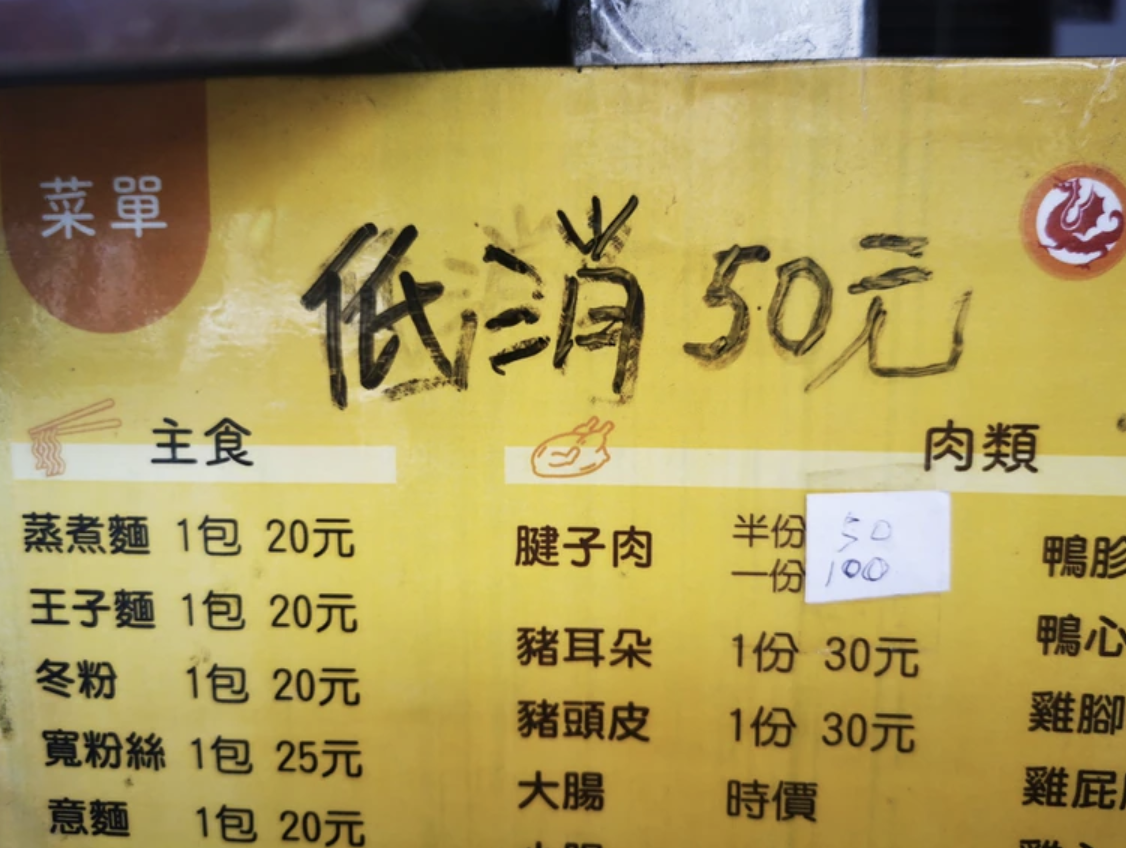 菜單
低消 50元
主食
蒸煮麵 1包 20元
王子麵 1包 20元
冬粉 1包 20元
寬粉絲 1包 25元
意麵 1包 20元
肉類
腱子肉 半份 50
一份 100
豬耳朵 1份 30元
豬頭皮 1份 30元
大腸 時價
鴨胗
鴨心
雞腳
雞屁